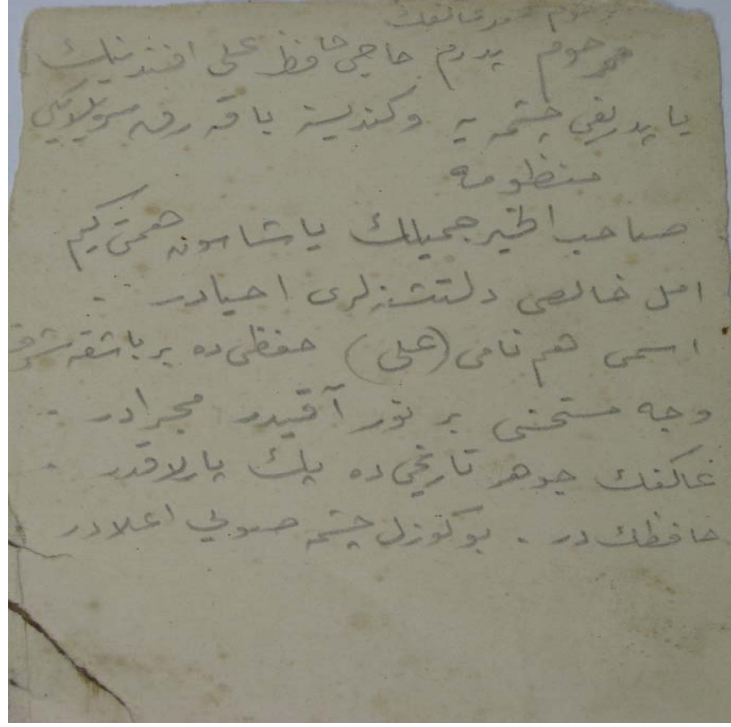 مرحوم
مرحوم پدرم حاجی حافظ علی افندینك
یاپدیردیغی چشمه یه وكندیسنه باقه رق سویلدیكی
منظومه
صاحب الخیر جمیلك یاشاسون همتی كیم
امل خالصی دلتشنه لری احیادر .
اسمی هم نامی (علی) حفظی ده بر باشقه شرف
وجه مستحسنی بر نور آقیدر مجرادر .
عاكفك جوهر تاریخی ده پك پارلاقدر .
حافظك در . بو كوزل چشمه صویی اعلادر